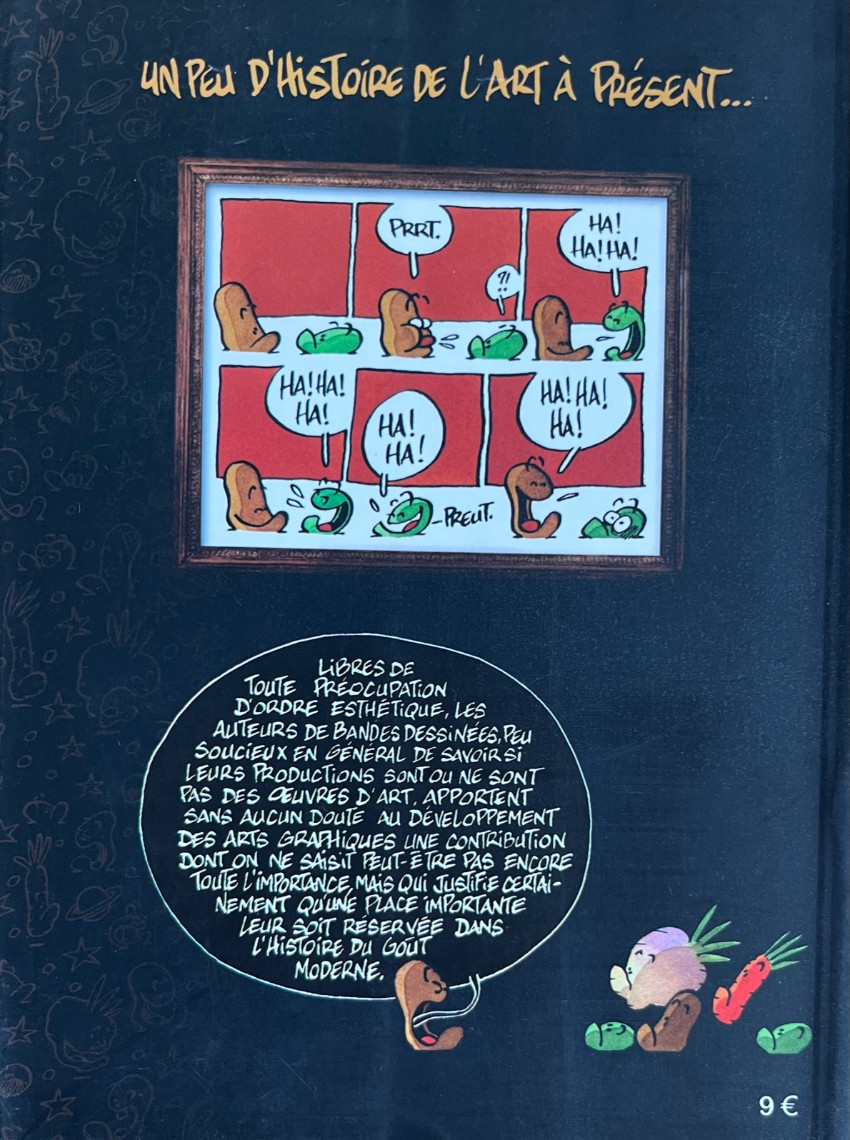 UN PEU D'HISTOIRE DE L'ART À PRÉSENT...
PRRT.
?!
HA!
HA! HA!
HA! HA!
HA!
HA!
HA!
-PREUT.
HA! HA!
HA!
LIBRES DE
TOUTE PRÉOCUPATION
D'ORDRE ESTHÉTIQUE, LES
AUTEURS DE BANDES DESSINÉES, PEU
SOUCIEUX EN GÉNÉRAL DE SAVOIR SI
LEURS PRODUCTIONS SONT OU NE SONT
PAS DES ŒUVRES D'ART, APPORTENT
SANS AUCUN DOUTE AU DÉVELOPPEMENT
DES ARTS GRAPHIQUES UNE CONTRIBUTION
DONT ON NE SAISIT PEUT-ÊTRE PAS ENCORE
TOUTE L'IMPORTANCE, MAIS QUI JUSTIFIE CERTAI-
NEMENT QU'UNE PLACE IMPORTANTE
LEUR SOIT RÉSERVÉE DANS
L'HISTOIRE DU GOUT
MODERNE.
9 €